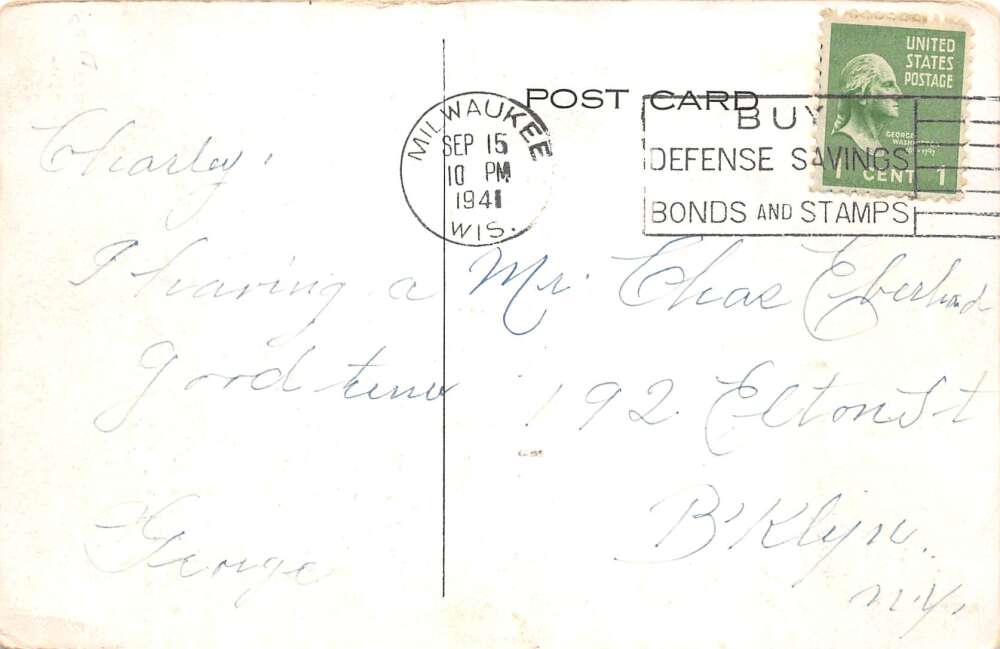 POST CARD
MILWAUKEE
SEP 15
10 PM
1941
WIS.
BUY
DEFENSE SAVINGS
BONDS AND STAMPS
UNITED
STATES
POSTAGE
GEORGE
WASHINGTON
1 CENT 1
Charley,
I having a
good time
George
Mr. Chas Eberhard
192 Elton St
B'klyn.
N.Y.